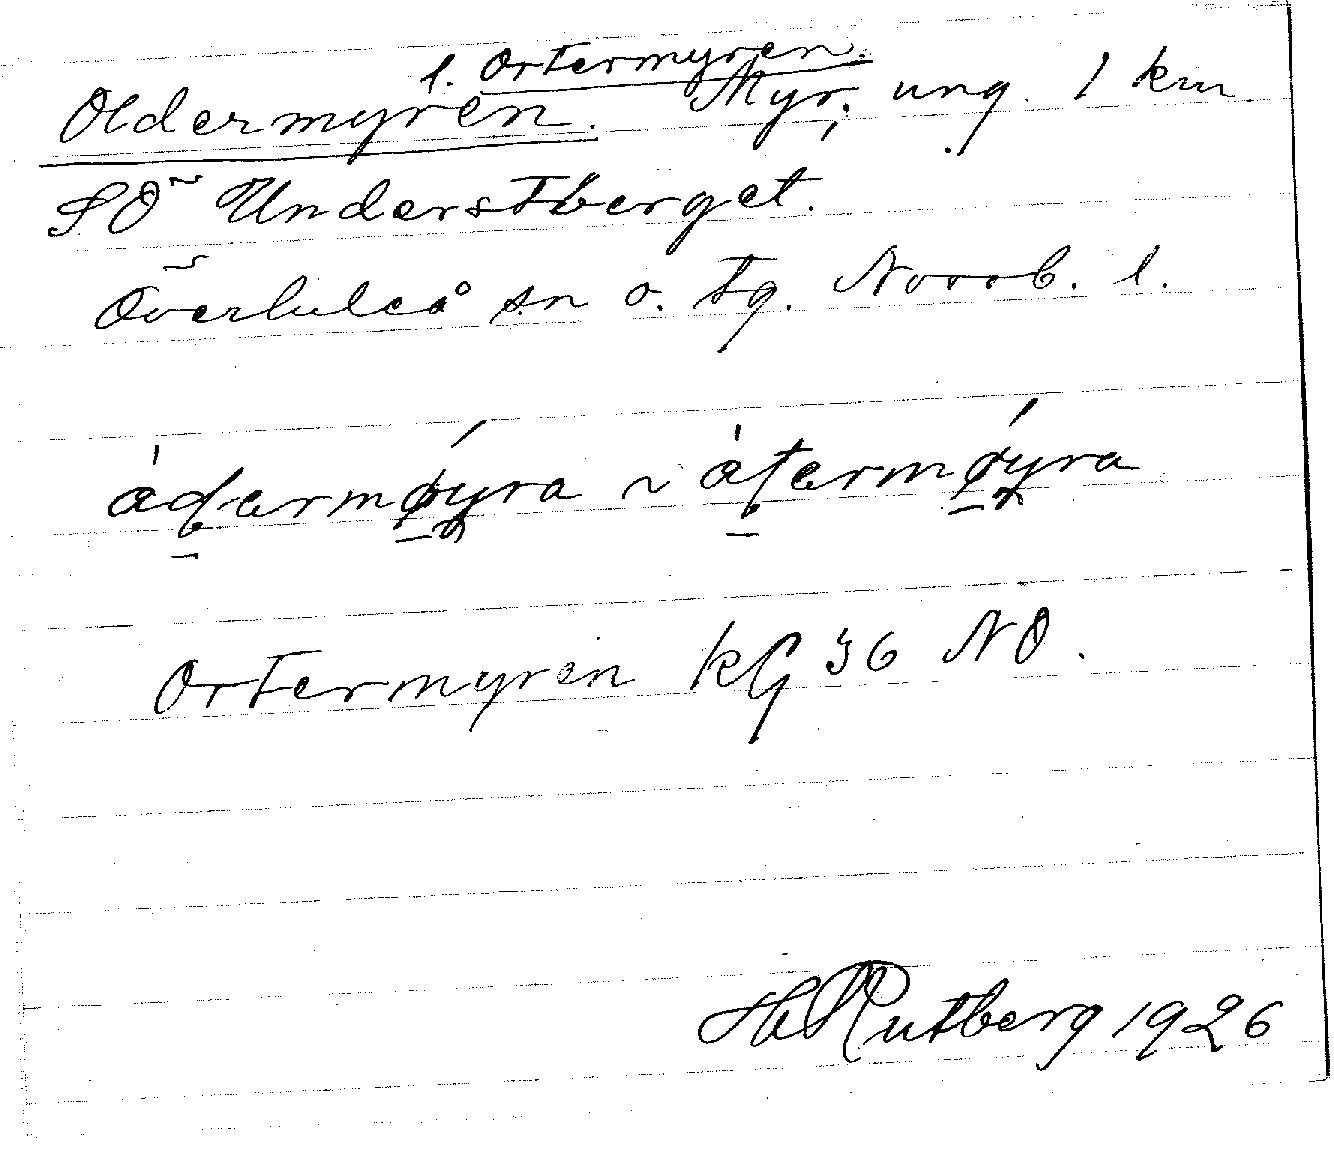 l. Ortermyren.
Oldermyren. Myr, ung. 1 km
SÖ Understberget.
Överluleå sn o. tg. Norrb. l.
ortermyren kG 36 NO.
H Rutberg 1926